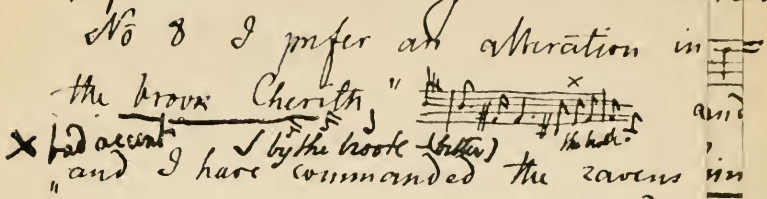 No 8 I prefer an alteration in
the brook Cherith," × the brook. and
× bad accent by the brook (better)
"and I have commanded the ravens in